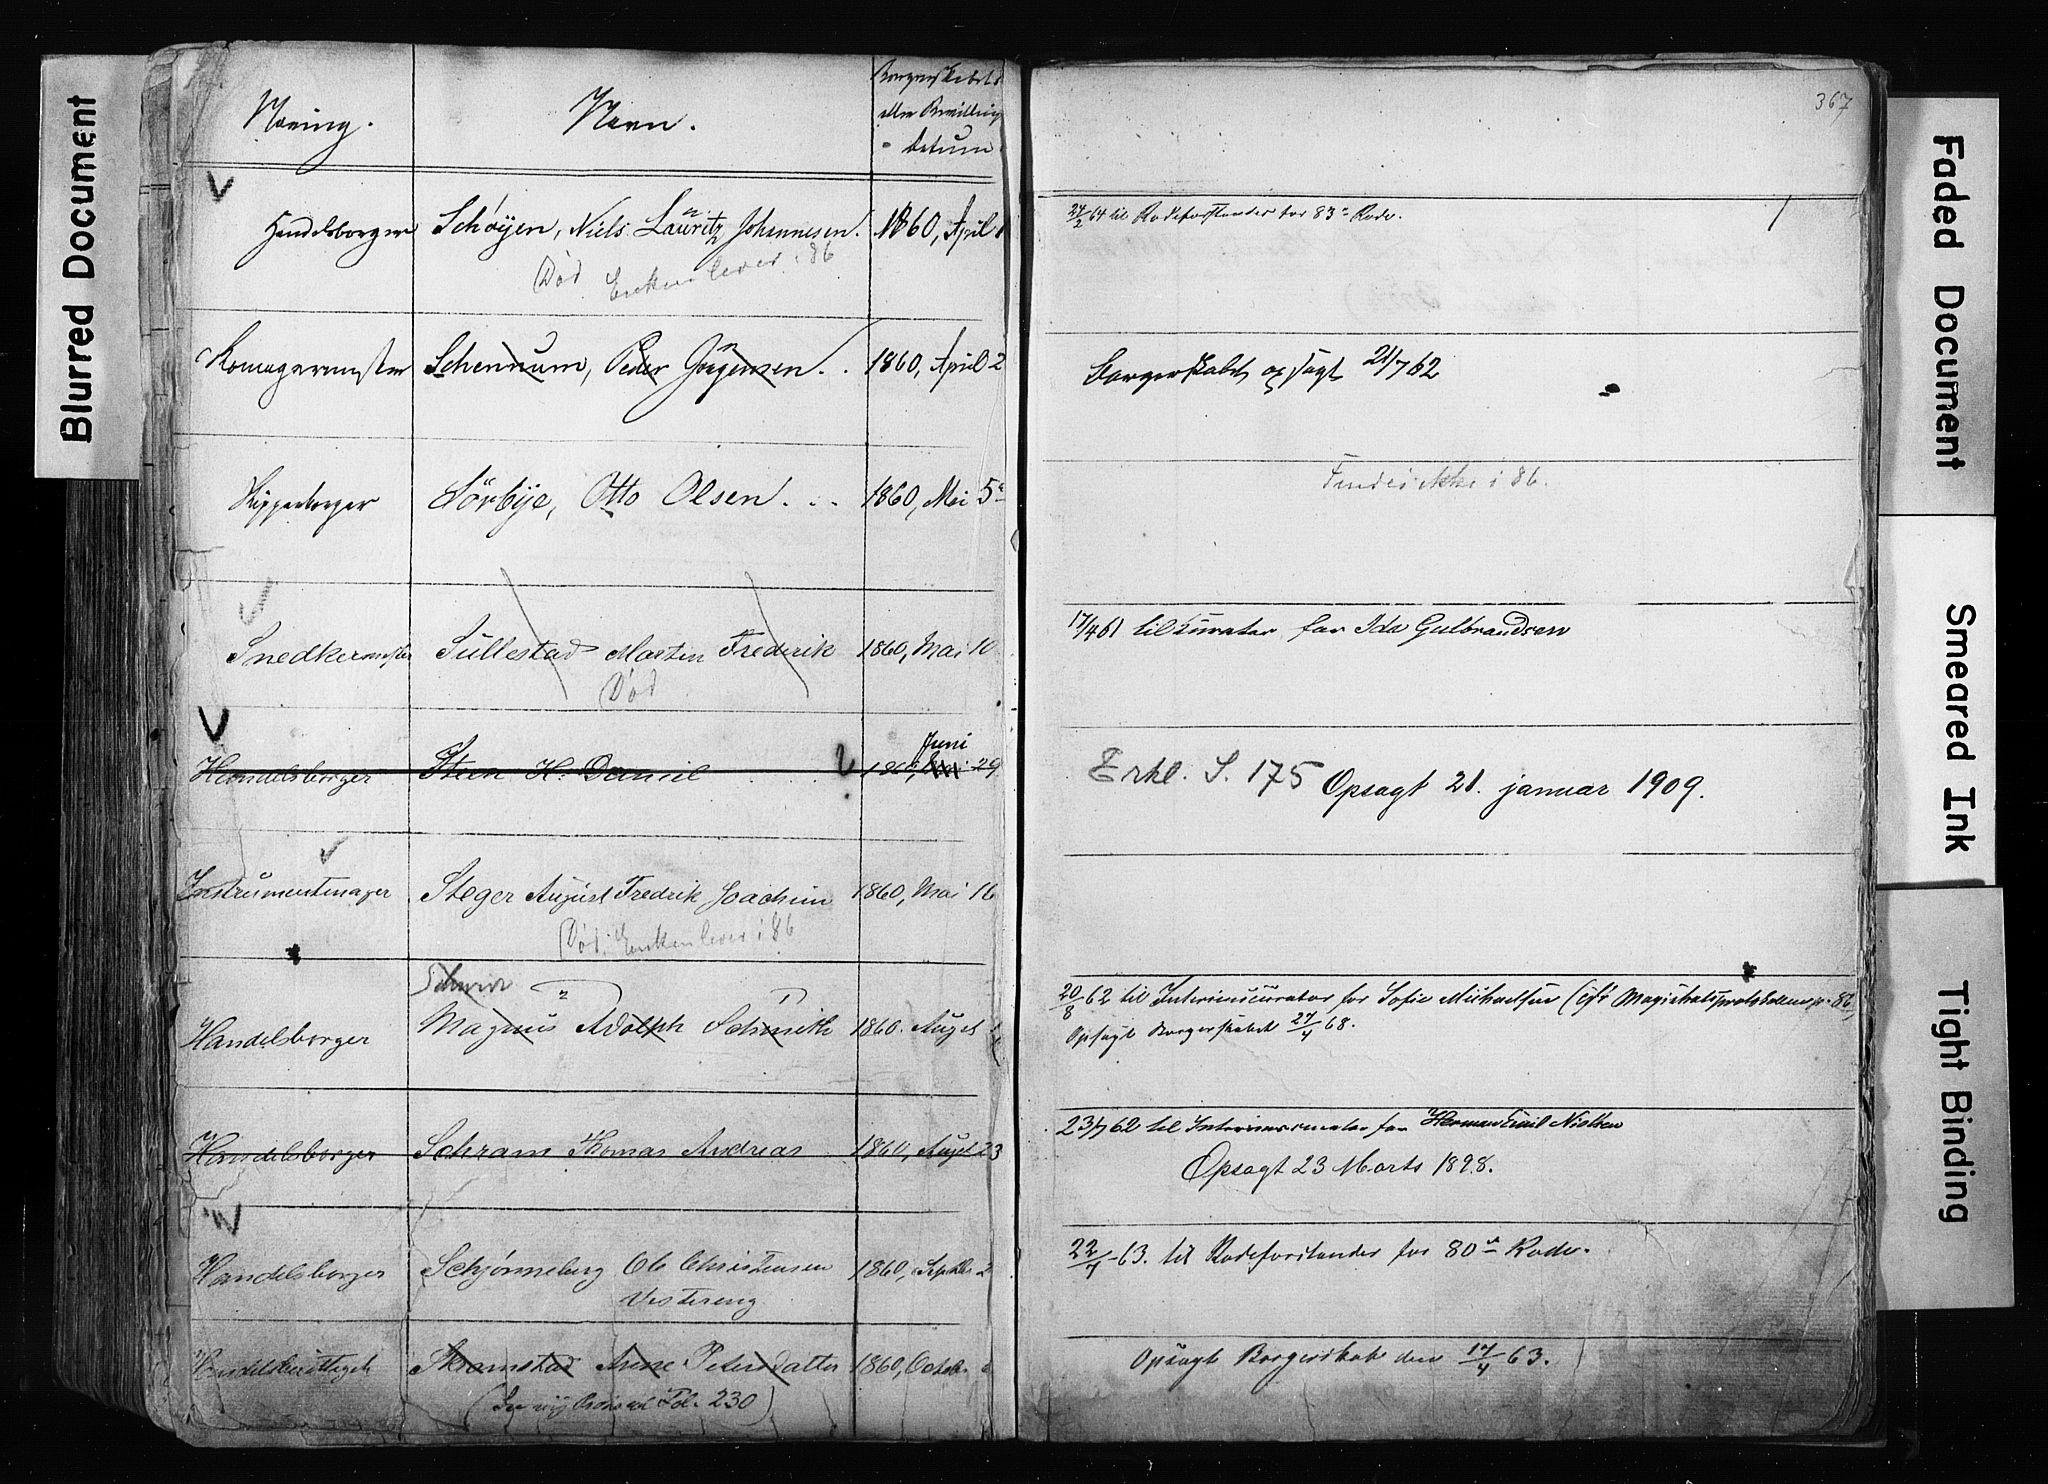 Blurred Document
Næring.
Navn.
Borgerskabets
eller Bevillings
Datum
Handelsborger Schøyen, Niels Lauritz Johannesen. 1860, April
Død Enken lever i 86
Komagermester Schennum, Peder Jørgensen . . 1860, April 2
Høkerborger Sørbye, Otto Olsen . . . 1860, Mai 5
Snedkermester Sullestad Morten Frederik 1860, Mai 10
Død
Juni
Handelsborger Steen H. Daniel 1860, Mai 29
Instrumentmager Steger August Fredrik Joachim 1860, Mai 16
Død. Enken lever i 86
Handelsborger Magnus Adolph Schmith 1860. Augst
Handelsborger Schram Thomas Andreas 1860, Augst 23
Handelsborger Schjørneberg Ole Christensen 1860, Septbr 2
Vestereng
Handelsberettiget Skramstad Anne Petersdatter 1860, Octob.
Fol. 230)
367
27/2 64 til Rodeforstander for 83de Rode.
Borgerskabet opsagt 21/7 62
Findes ikke i 86.
17/4 61 til Kurator for Ida Gulbrandsen
Erkl. S. 175 Opsagt 21. januar 1909.
20/8 62 til Interimscurator for Sofie Michaelsen (cfr Magistratsprotokollen p. 86)
Opsagt Borgerskabet 27/4 68.
23/7 62 til Interimscurator for Herman Emil Nielsen
Opsagt 23 Marts 1898.
22/7 63. til Rodeforstander for 80de Rode.
Opsagt Borgerskabet den 17/4 63.
Faded Document
Smeared Ink
Tight Binding